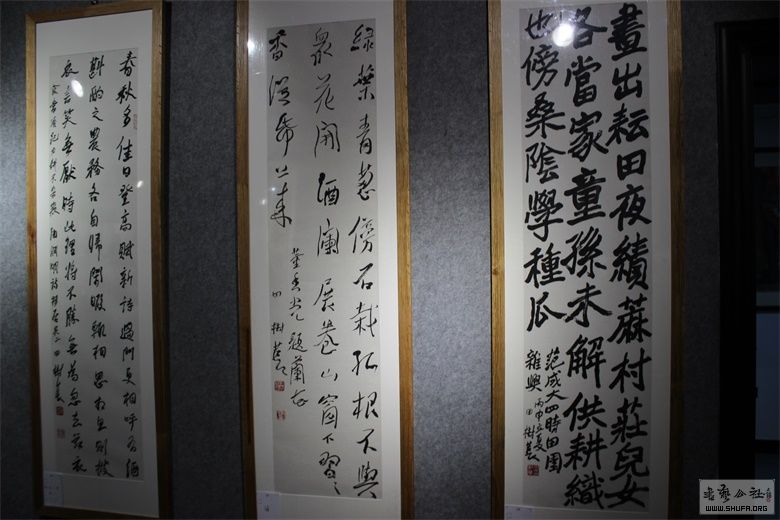 晝出耘田夜績蔴村莊兒女
各當家童孫未解供耕織
也傍桑陰學種瓜
范成大四時田園
雜興 丙申立夏 田樹萇
綠葉青蔥傍石栽孤根不與
衆花開酒闌展卷山窗下習〻
香從紙上來
董香光題蘭
田樹萇
春秋多佳日登高賦新詩過門更相呼有酒
斟酌之農務各自歸閑暇輒相思相思則披
衣言笑無厭時此理將不勝無為忽去茲衣
食當須紀力耕不吾欺 陶淵明詩移居 田樹萇
書藝公社
WWW.SHUFA.ORG